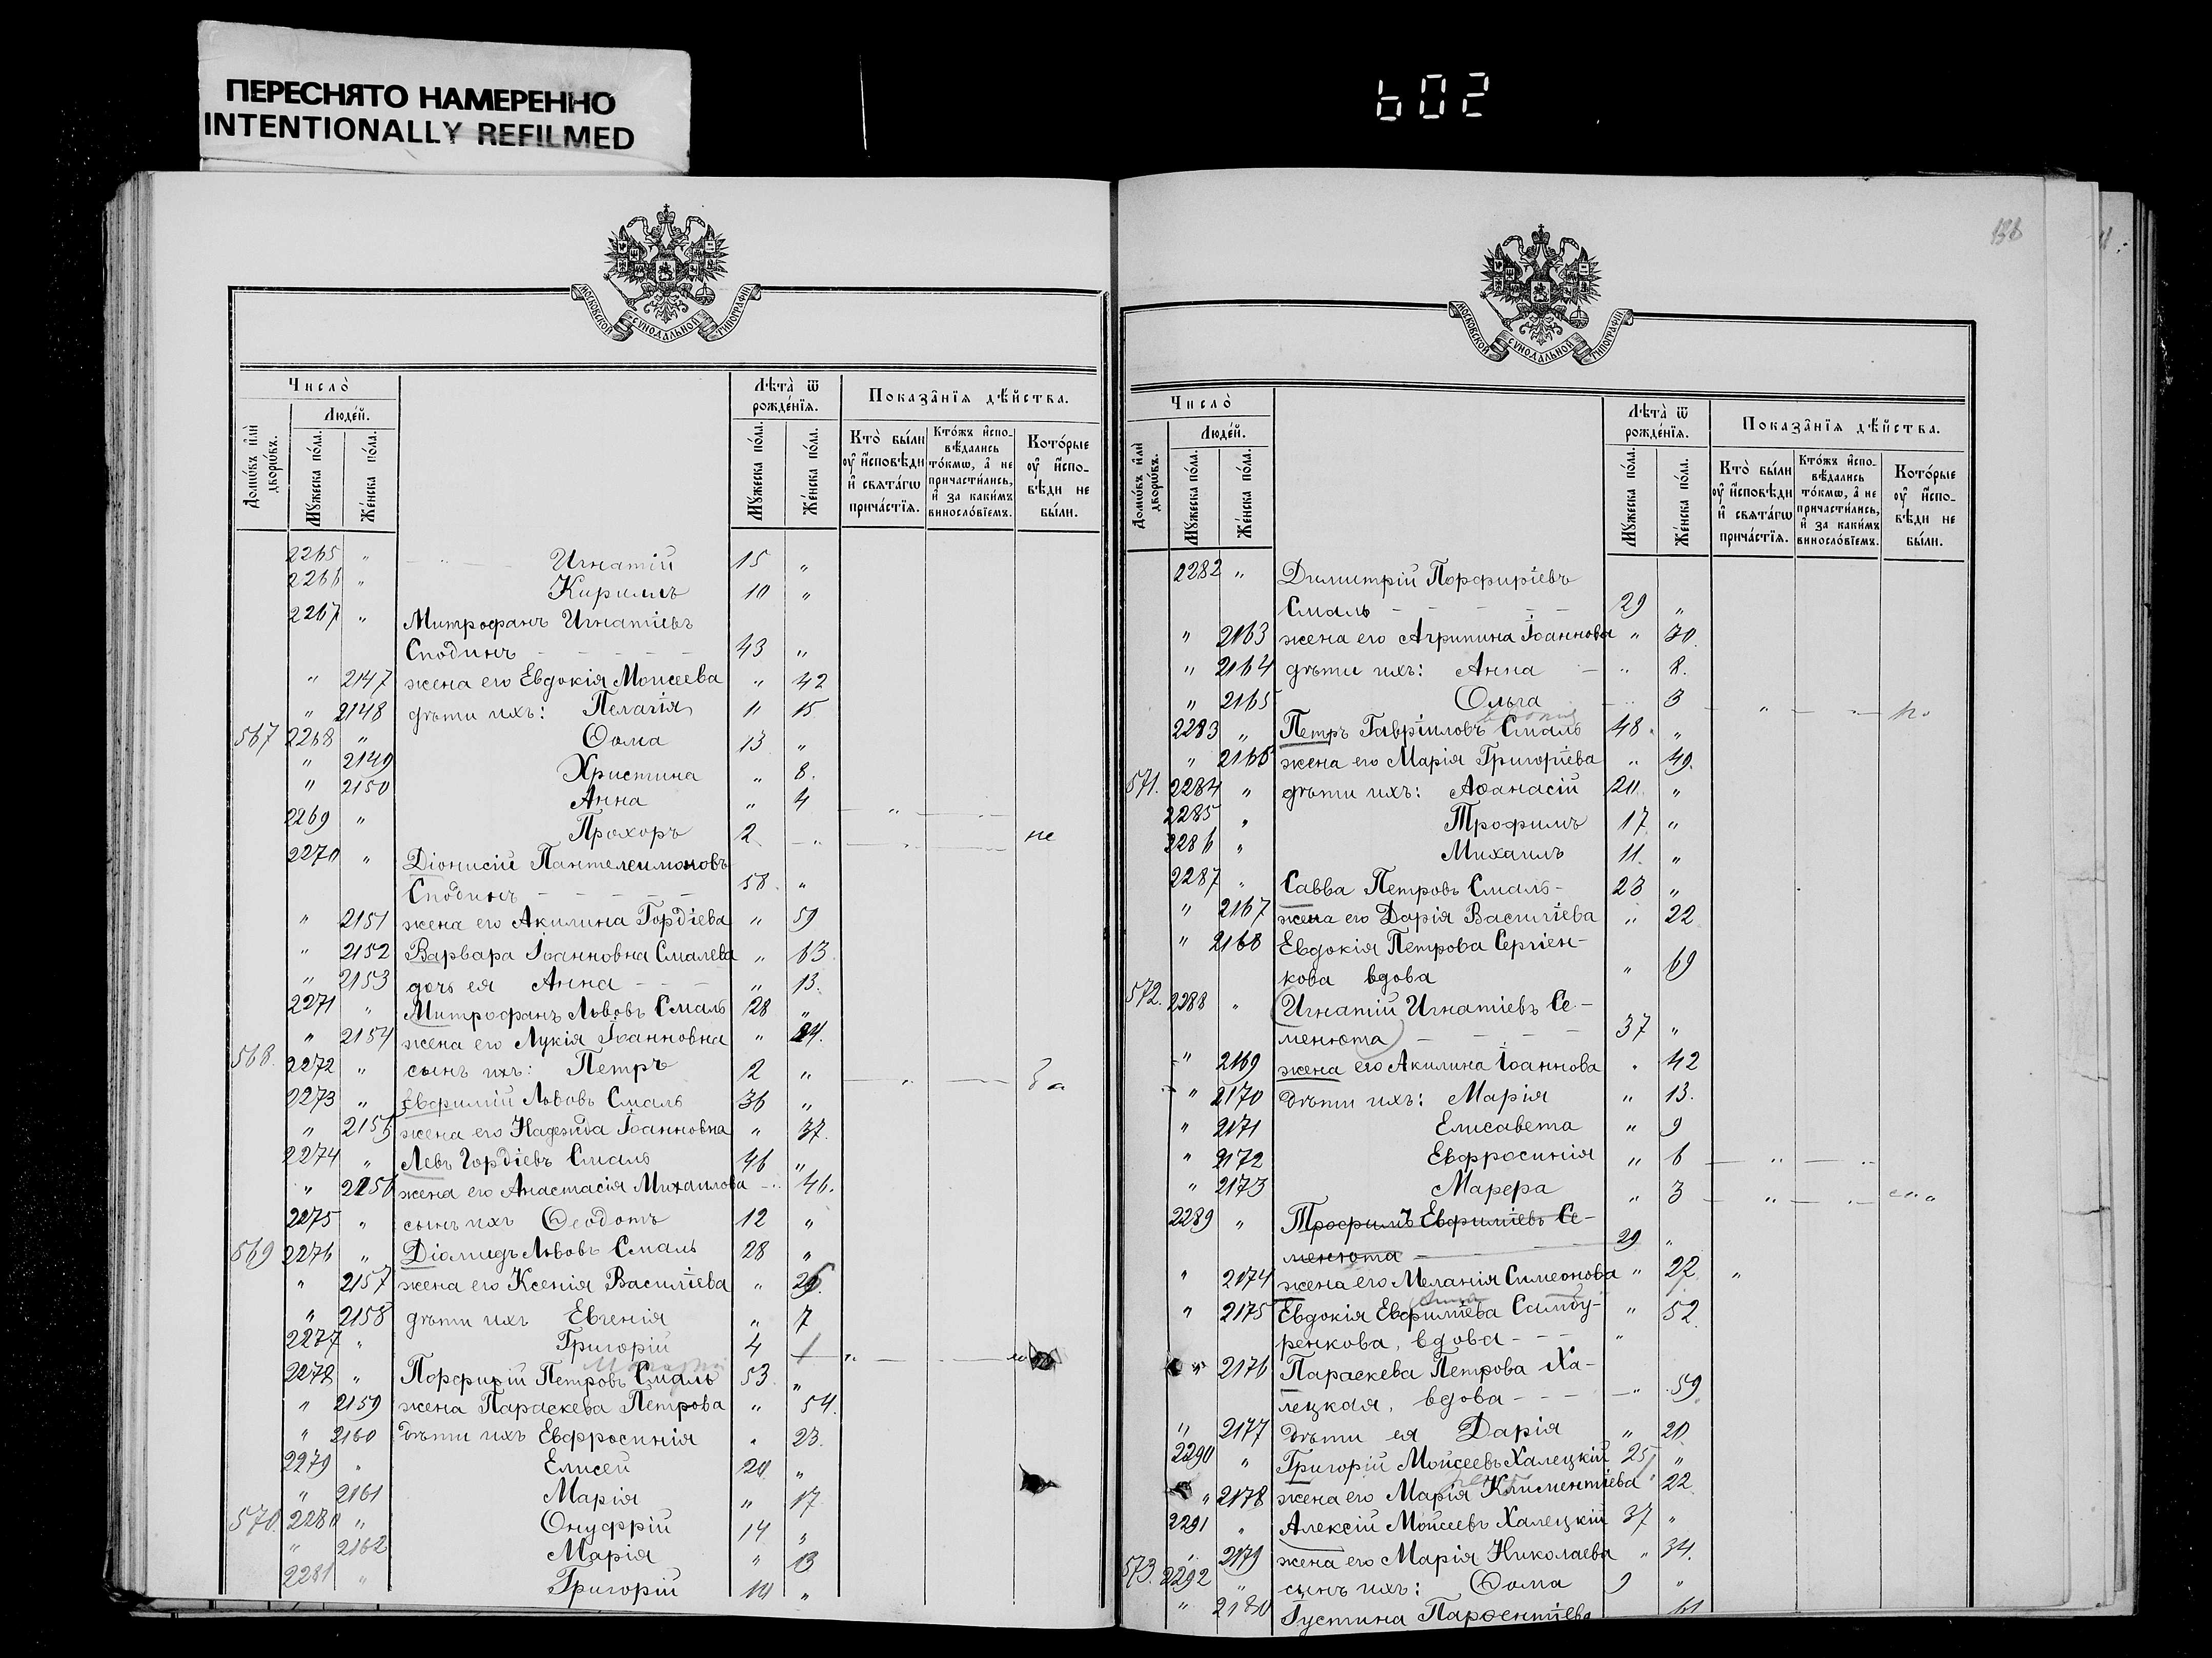 ПЕРЕСНЯТО НАМЕРЕННО
INTENTIONALLY REFILMED
602
МОСКОВСКОЙ СѴНОДАЛЬНОЙ ТИПОГРАФІИ
Число̀
Люде́й.
Домѡ́въ и҆лѝ дворѡ́въ.
Мꙋ́жеска по́ла.
Же́нска по́ла.
Лѣта̀ ѿ рожде́нїѧ.
Мꙋ́жеска по́ла.
Же́нска по́ла.
Показа̑нїѧ дѣ́йства.
Кто̀ бы́ли оу҆ и҆сповѣди и҆ свѧта́гѡ прича́стїѧ.
Кто́жъ и҆спо-вѣдались то́кмѡ, а҆ не причасти́лись, и҆ за каки́мъ винослові́емъ.
Кото́рые оу҆ и҆спо-вѣди не бы́ли.
2265 " Игнатій 15 "
2266 " Кириллъ 10 "
2267 " Митрофанъ Игнатіевъ
Сподинъ 43 "
" 2147 жена его Евдокія Моисеева " 42
" 2148 дѣти ихъ: Пелагія 11 15
567 2268 " Ѳома 13 "
" 2149 Христина " 8.
" 2150 Анна " 4
2269 " Прохоръ 2 " не
2270 " Діонисій Пантелеимоновъ
Сподинъ 58. "
" 2151 жена его Акилина Гордіева " 59
" 2152 Варвара Іоанновна Смалева " 63
" 2153 дочь ея Анна " 13.
2271 " Митрофанъ Львовъ Смаль 28 "
" 2154 жена его Лукія Іоанновна " 24.
568. 2272 " сынъ ихъ: Петръ 2 "
2273 " Евфимій Львовъ Смаль 36 "
" 2155 жена его Надежда Іоанновна " 37.
2274 " Левъ Гордіевъ Смаль 46 "
" 2156 жена его Анастасія Михаилова " 46.
2275 " сынъ ихъ Ѳеодотъ 12 "
569 2276 " Діомидъ Львовъ Смаль 28 "
" 2157 жена его Ксенія Василіева " 26.
" 2158 дѣти ихъ Евгенія " 7
2277 " Григорій 4
2278 " Порфирій Петровъ Смаль 53 "
" 2159 жена Параскева Петрова " 54.
" 2160 дѣти ихъ Евфросинія " 23.
2279 " Елисей 20 "
" 2161 Марія " 17
570. 2280 " Онуфрій 14 "
" 2162 Марія " 13
2281 " Григорій 10 "
136
МОСКОВСКОЙ СѴНОДАЛЬНОЙ ТИПОГРАФІИ
Число̀
Люде́й.
Домѡ́въ и҆лѝ дворѡ́въ.
Мꙋ́жеска по́ла.
Же́нска по́ла.
Лѣта̀ ѿ рожде́нїѧ.
Мꙋ́жеска по́ла.
Же́нска по́ла.
Показа̑нїѧ дѣ́йства.
Кто̀ бы́ли оу҆ и҆сповѣди и҆ свѧта́гѡ прича́стїѧ.
Кто́жъ и҆спо-вѣдались то́кмѡ, а҆ не причасти́лись, и҆ за каки́мъ винослові́емъ.
Кото́рые оу҆ и҆спо-вѣди не бы́ли.
2282 " Димитрій Порфиріевъ
Смаль 29 "
" 2163 жена его Агрипина Іоаннова " 30.
" 2164 дѣти ихъ: Анна " 8.
" 2165 Ольга " 3
2283 " Петръ Гавріиловъ Смаль 48 "
" 2166 жена его Марія Григоріева " 49.
571. 2284 " дѣти ихъ: Аѳанасій 20 "
2285 " Трофимъ 17 "
2286 " Михаилъ 11. "
2287 " Савва Петровъ Смаль 23 "
" 2167 жена его Дарія Василіева " 22
" 2168 Евдокія Петрова Сергіен-
кова вдова " 69
572. 2288 " Игнатій Игнатіевъ Се-
менюта 37 "
" 2169 жена его Акилина Іоаннова " 42
" 2170 дѣти ихъ: Марія " 13.
" 2171 Елисавета " 9
" 2172 Евфросинія " 6
" 2173 Марѳа " 3
2289 " Трофимъ Евфиміевъ Се-
менюта 29 "
" 2174 жена его Меланія Симеонова " 27 "
" 2175 Евдокія Евфиміева Самбу-
ренкова, вдова " 52
" 2176 Параскева Петрова Ха-
лецкая, вдова " 59.
" 2177 дѣти ея Дарія " 20
2290 " Григорій Моисеевъ Халецкій 25 "
" 2178 жена его Марія Климентіева " 22
2291 " Алексій Моисеевъ Халецкій 37 "
" 2179 жена его Марія Николаева " 34.
573. 2292 " сынъ ихъ: Ѳома 9 "
" 2180 Іустина Парѳентіева 61